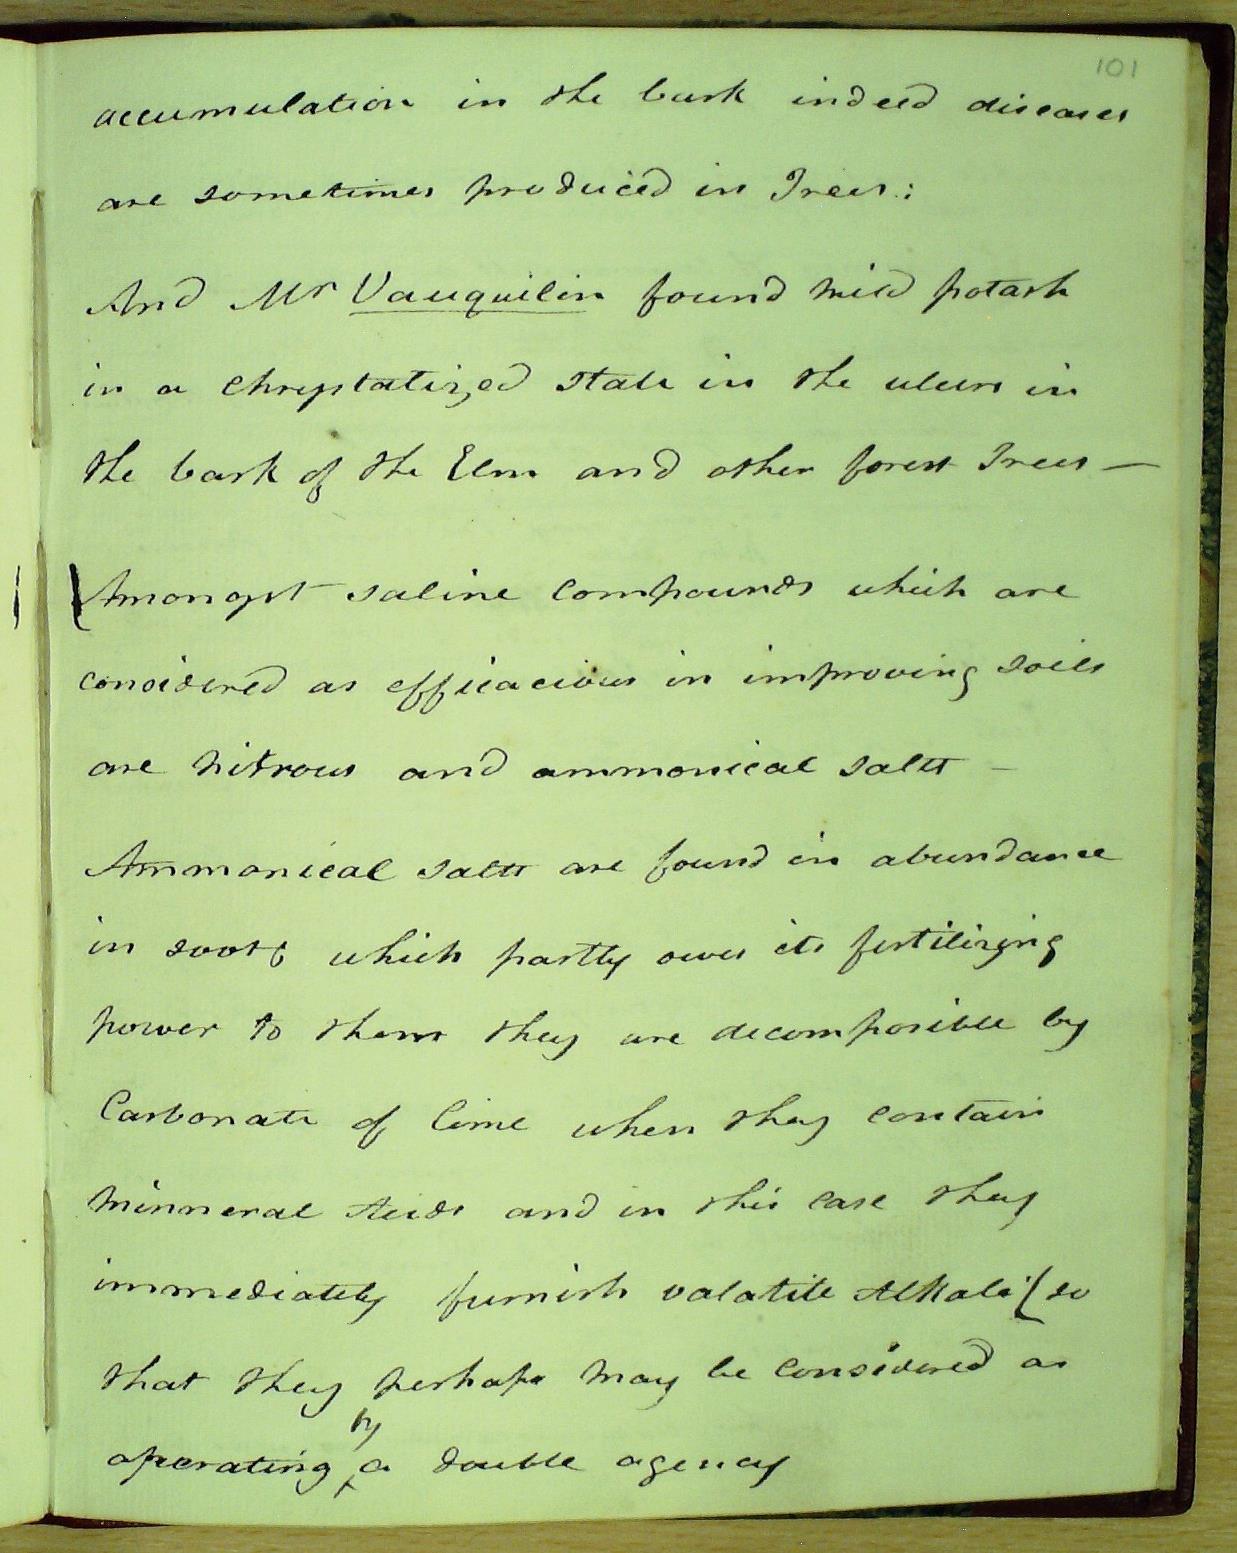 101
accumulation in the bark indeed diseases
are sometimes produced in Trees:
And Mr Vauquilin found mild potash
in a chrystatized state in the ulcers in
the bark of the Elm and other forest Trees —
Amongst saline compounds which are
considered as efficacious in improving soils
are nitrous and ammonical salts —
Ammonical salts are found in abundance
in soot which partly owes its fertilizing
power to them they are decomposible by
Carbonate of lime when they contain
Minneral Acids and in this case they
immediately furnish volatile Alkali (so
that they perhaps may be considered as
by
operating a double agency